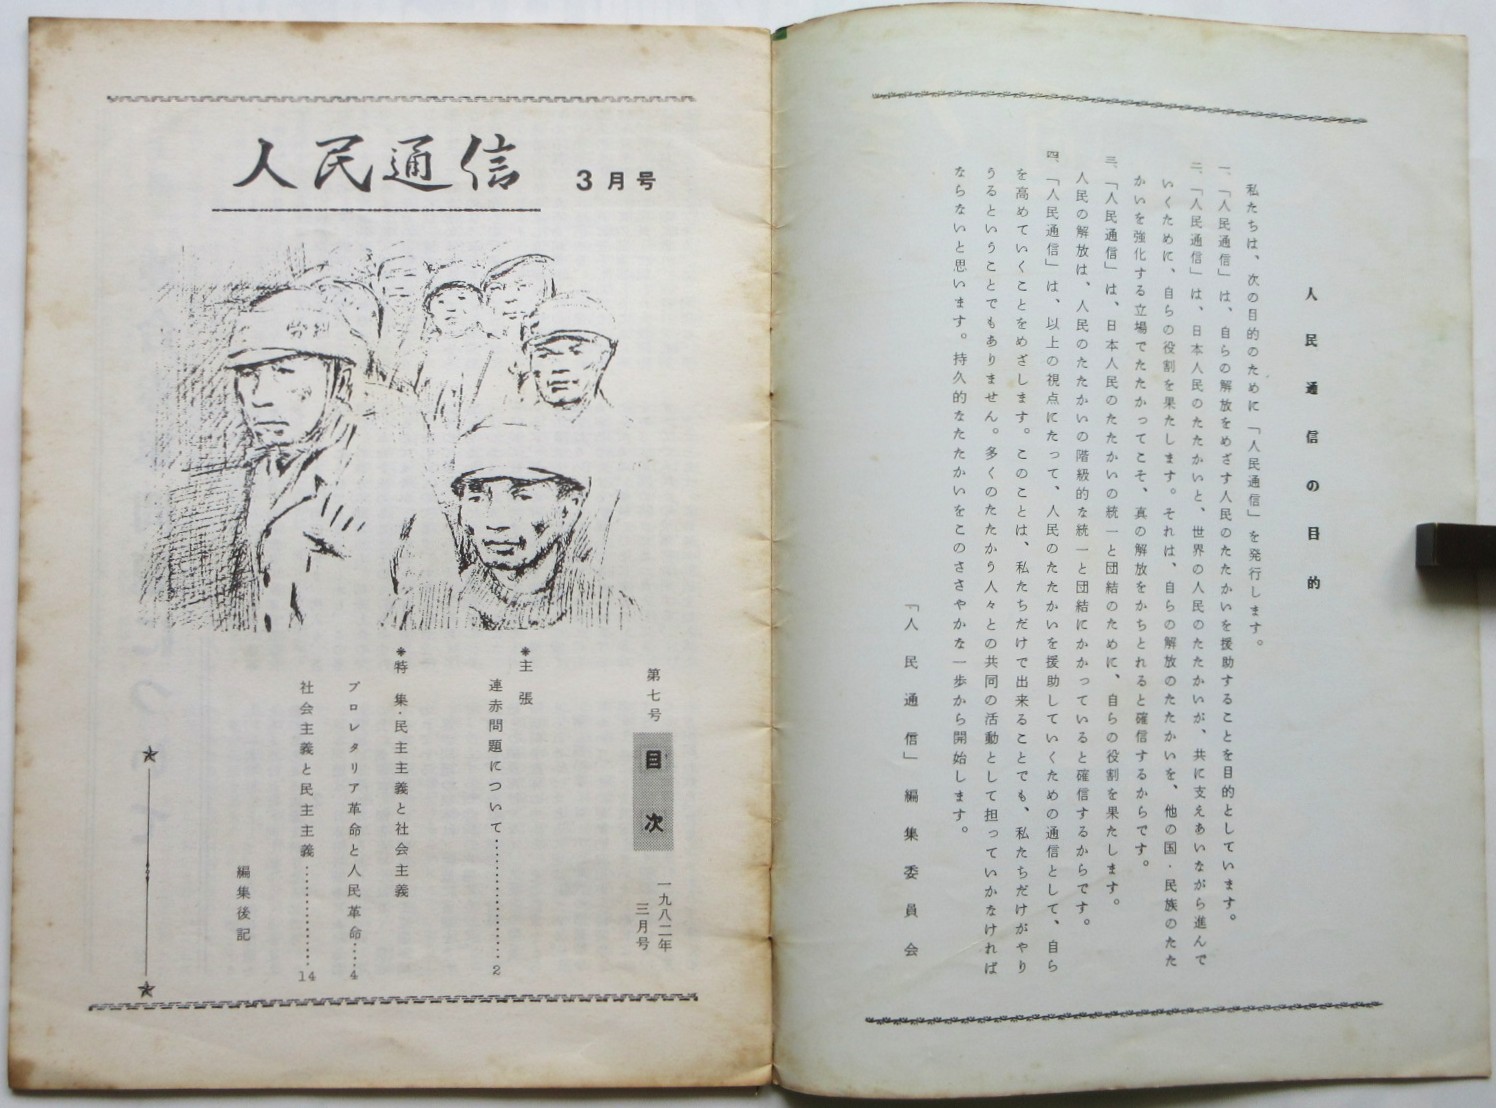 人民通信の目的
私たちは、次の目的のために「人民通信」を発行します。
一、「人民通信」は、自らの解放をめざす人民のたたかいを援助することを目的としています。
二、「人民通信」は、日本人民のたたかいと、世界の人民のたたかいが、共に支えあいながら進んで
いくために、自らの役割を果たします。それは、自らの解放のたたかいを、他の国・民族のたた
かいを強化する立場でたたかってこそ、真の解放をかちとれると確信するからです。
三、「人民通信」は、日本人民のたたかいの統一と団結のために、自らの役割を果たします。
人民の解放は、人民のたたかいの階級的な統一と団結にかかっていると確信するからです。
四、「人民通信」は、以上の視点にたって、人民のたたかいを援助していくための通信として、自ら
を高めていくことをめざします。このことは、私たちだけで出来ることでも、私たちだけがやり
うるということでもありません。多くのたたかう人々との共同の活動として担っていかなければ
ならないと思います。持久的なたたかいをこのささやかな一歩から開始します。
「人民通信」編集委員会
人民通信 3月号
第七号 目次 一九八二年
三月号
＊主張
連赤問題について………………2
＊特集・民主主義と社会主義
プロレタリア革命と人民革命……4
社会主義と民主主義………………14
編集後記